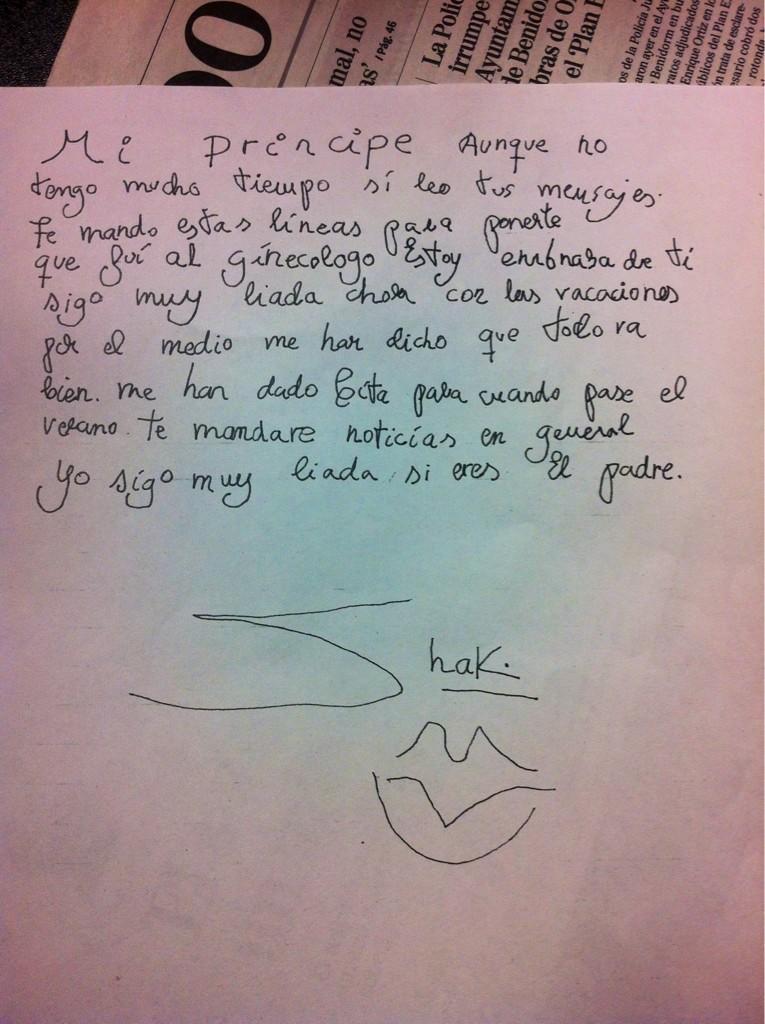 DO
mal, no
as' / Pág. 46
La Polic
irrumpe
Ayuntam
de Benido
bras de O
el 'Plan E
os de la Policía Ju
aron ayer en el Ay
Benidorm en bu
ratos adjudicados
Enrique Ortiz en lo
úblicos del Plan E.
ón trata de esclare-
esario cobró dos
rotonda
Mi principe Aunque no
tengo mucho tiempo sí leo tus mensajes.
Te mando estas líneas para ponerte
que fuí al gínecologo Estoy embrasada de ti
sigo muy liada ahora con las vacaciones
por el medio me han dicho que todo va
bien. me han dado Cita para cuando pase el
verano. te mandare noticías en general
Yo sígo muy liada si eres El padre.
Shak.